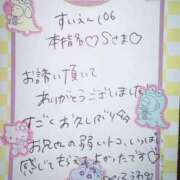 すいえん106
本指名♡Sさま♡
お誘い頂いて
ありがとうございました
すごくお久しぶり
お兄さんの弱いトコ、いっぱい
感じてもらえてよかったです♡